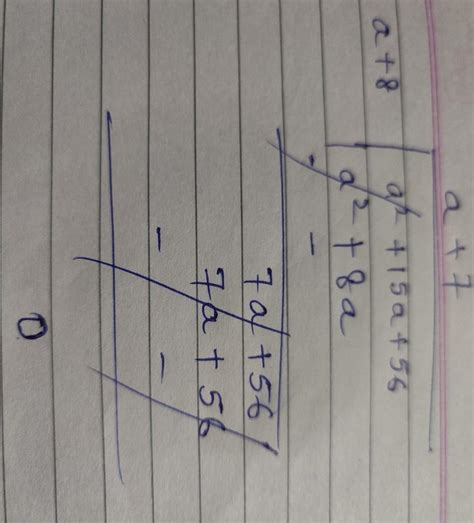 a + 7
a + 8 a² + 15a + 56
a² + 8a
- -
7a + 56
7a + 56
- -
0